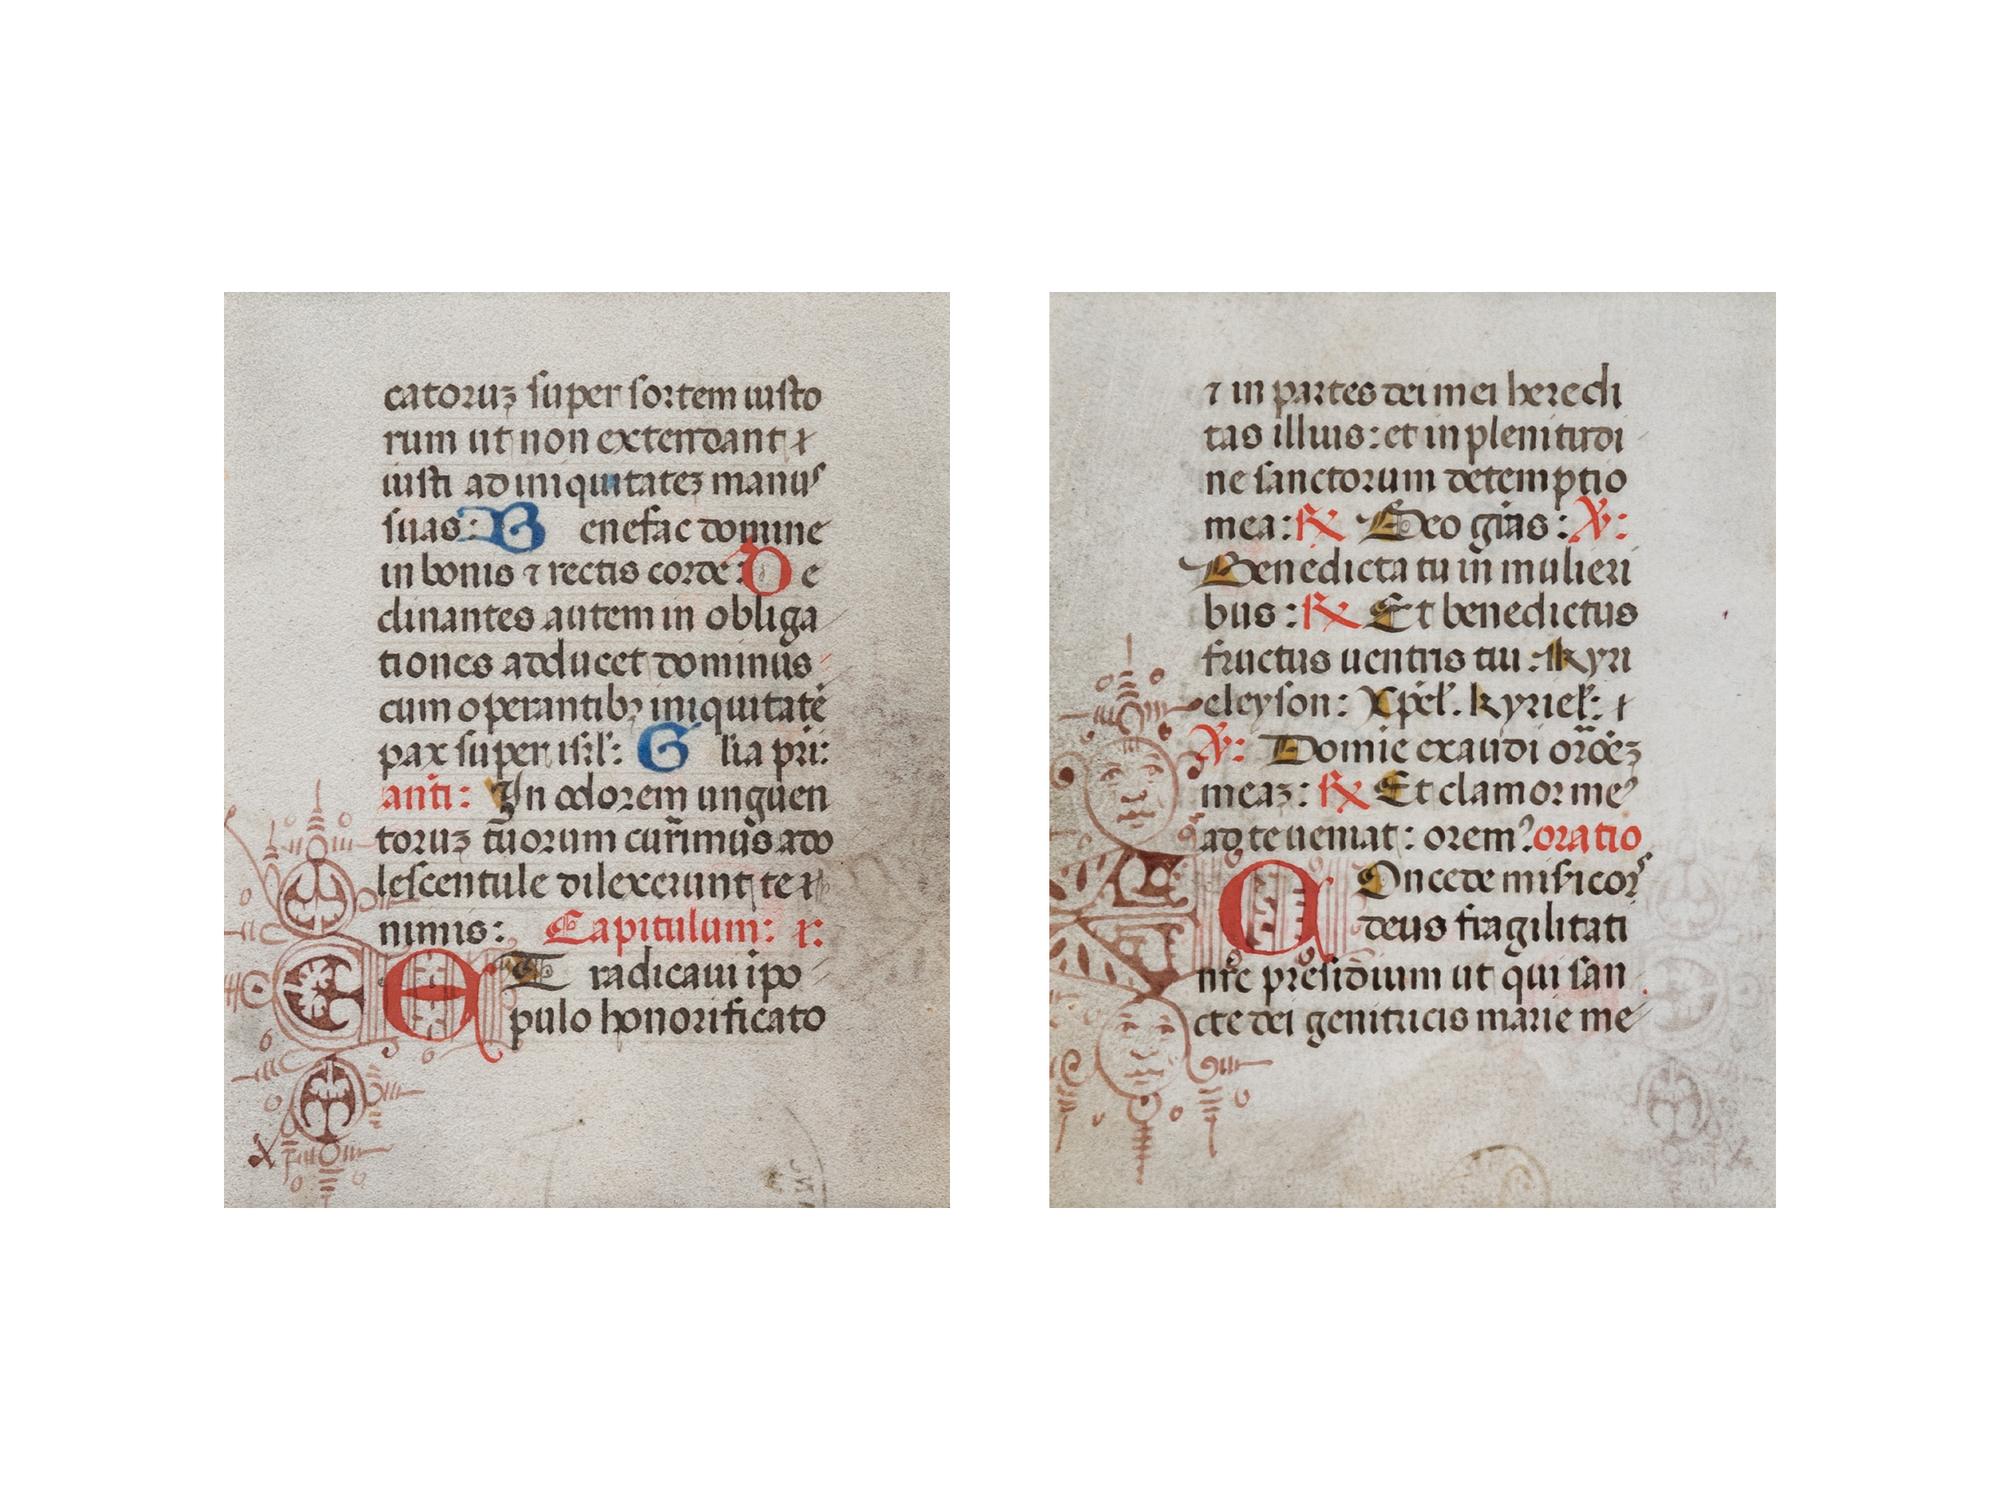 catoruꝫ super sortem iusto
rum ut non extendant
iusti ad iniquitateꝫ manus
suas: B enefac domine
in bonis ⁊ rectis corde: D e
clinantes autem in obliga
tiones adducet dominus
cum operantibꝫ iniquitatē
pax super isrl': G lia pri:
anti: In odorem unguen
toruꝫ tuorum currimus ado
lescentule dilexerunt te
nimis: Capitulum:
E T radicaui i po
pulo honorificato
⁊ in partes dei mei heredi
tas illius: et in plenitudi
ne sanctorum detemptio
mea: ℟ Deo grās: ℣:
Benedicta tu in mulieri
bus: ℟ Et benedictus
fructus uentris tui: kyri
eleyson: Xpēl'. kyriel':
℣: Domīe exaudi orōeꝫ
meaꝫ: ℟ Et clamor me
ad te ueniat: orem' oratio
C Oncede misicor
deus fragilitati
nrē presidium ut qui san
cte dei genitricis marie me